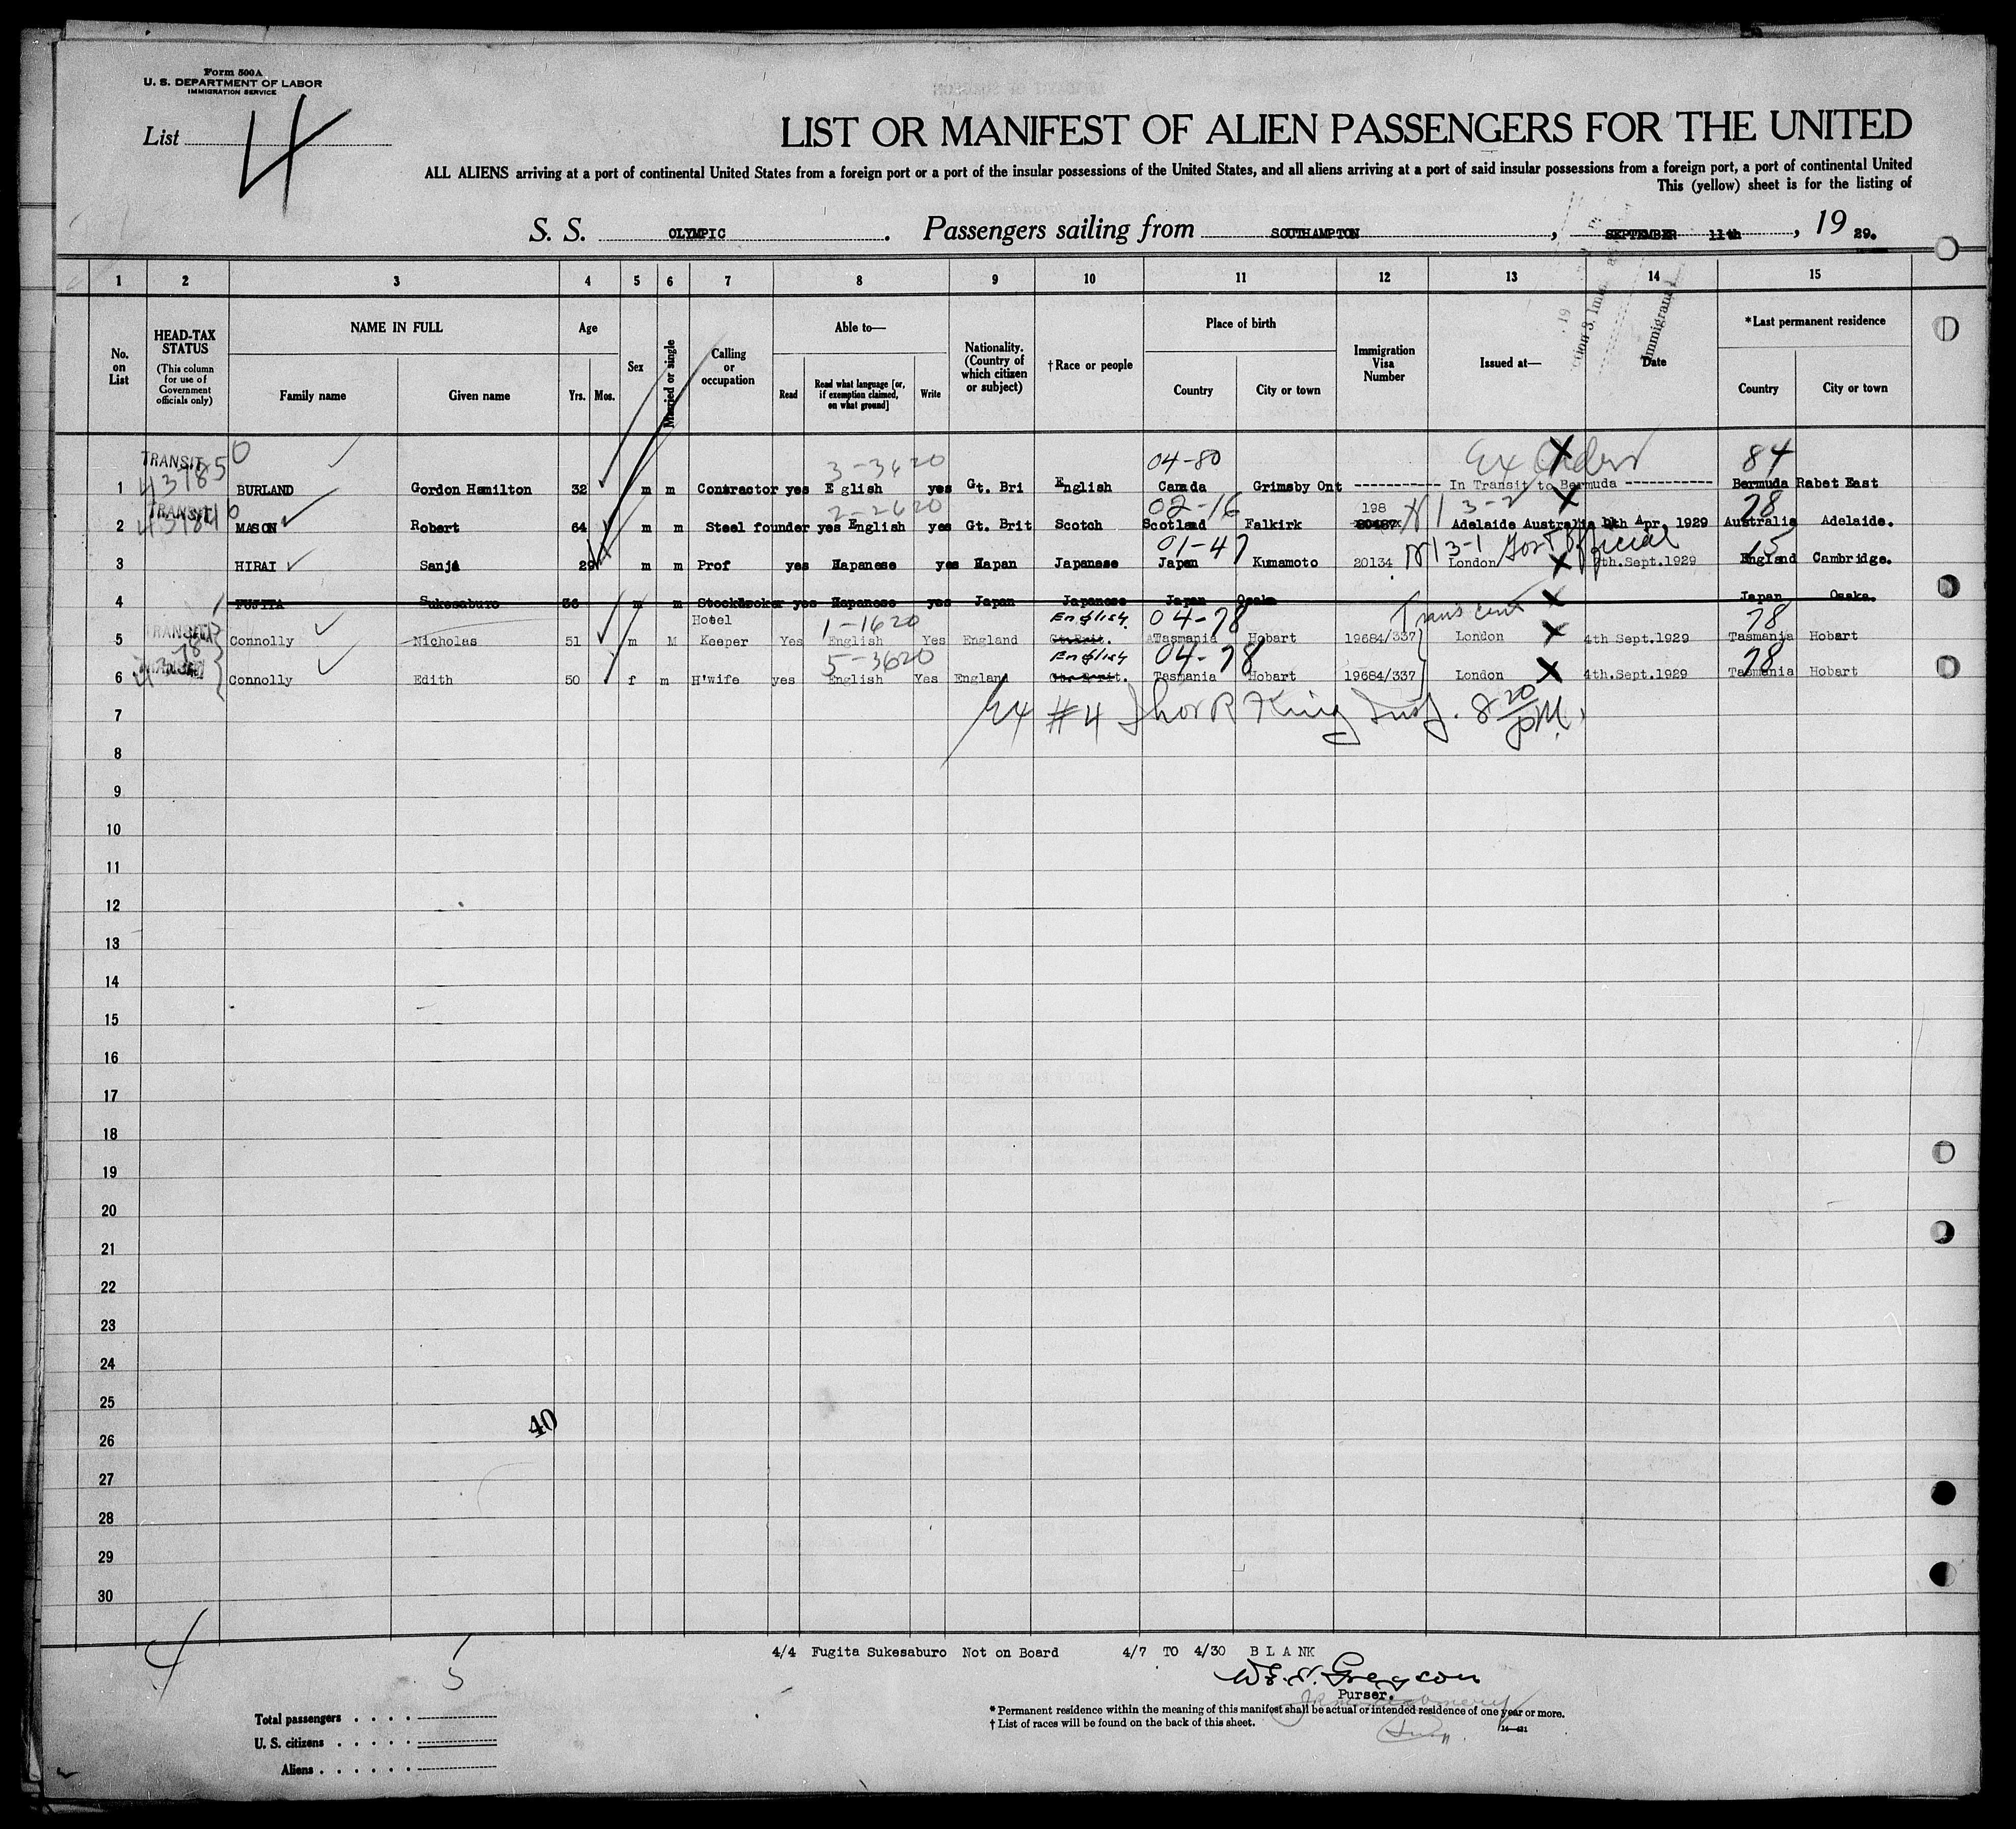 Form 500A
U. S. DEPARTMENT OF LABOR
IMMIGRATION SERVICE
List 4
LIST OR MANIFEST OF ALIEN PASSENGERS FOR THE UNITED
ALL ALIENS arriving at a port of continental United States from a foreign port or a port of the insular possessions of the United States, and all aliens arriving at a port of said insular possessions from a foreign port, a port of continental United
This (yellow) sheet is for the listing of
S. S. OLYMPIC. Passengers sailing from SOUTHAMPTON, SEPTEMBER 11th, 19 29.
1 2 3 4 5 6 7 8 9 10 11 12 13 14 15
No. on List
HEAD-TAX STATUS (This column for use of Government officials only)
NAME IN FULL
Family name Given name
Age
Yrs. Mos.
Sex
Married or single
Calling or occupation
Able to—
Read Read what language [or, if exemption claimed, on what ground] Write
Nationality. (Country of which citizen or subject)
†Race or people
Place of birth
Country City or town
Immigration Visa Number
Issued at—
Date
*Last permanent residence
Country City or town
TRANSIT 3-3620 04-80 84
1 BURLAND Gordon Hamilton 32 m m Contractor yes E glish yes Gt. Bri English Canada Grimsby Ont ----------- In Transit to Bermuda ----------- Bermuda Rabet East
TRANSIT 2-2620 02-16 198 3-2 78
2 MASON Robert 64 m m Steel founder yes English yes Gt. Brit Scotch Scotland Falkirk Adelaide Australia Apr. 1929 Australia Adelaide.
01-47 3-1 Gov't Official 15
3 HIRAI Sanji 29 m m Prof yes Hapanese yes Hapan Japanese Japan Kumamoto 20134 London 7th.Sept.1929 England Cambridge.
4 FUJITA Sukesaburo 36 m m Stockbroker yes Hapanese yes Japan Japanese Japan Osaka Japan Osaka.
TRANSIT Hotel 1-1620 English 04-78 Trans cert 78
5 Connolly Nicholas 51 m M Keeper Yes English Yes England Gt.Brit. Tasmania Hobart 19684/337 London 4th Sept.1929 Tasmania Hobart
5-3620 English 04-78 78
6 Connolly Edith 50 f m H'wife yes English Yes England Gt. Brit. Tasmania Hobart 19684/337 London 4th.Sept.1929 Tasmania Hobart
7 Ex #4 Thos R King Insp. 8 20 PM.
8
9
10
11
12
13
14
15
16
17
18
19
20
21
22
23
24
25
40
26
27
28
29
30
4 5
4/4 Fugita Sukesaburo Not on Board 4/7 TO 4/30 B L A N K
Purser.
* Permanent residence within the meaning of this manifest shall be actual or intended residence of one year or more.
† List of races will be found on the back of this sheet.
14—421
Total passengers . . . .
U. S. citizens . . . . .
Aliens . . . . . .